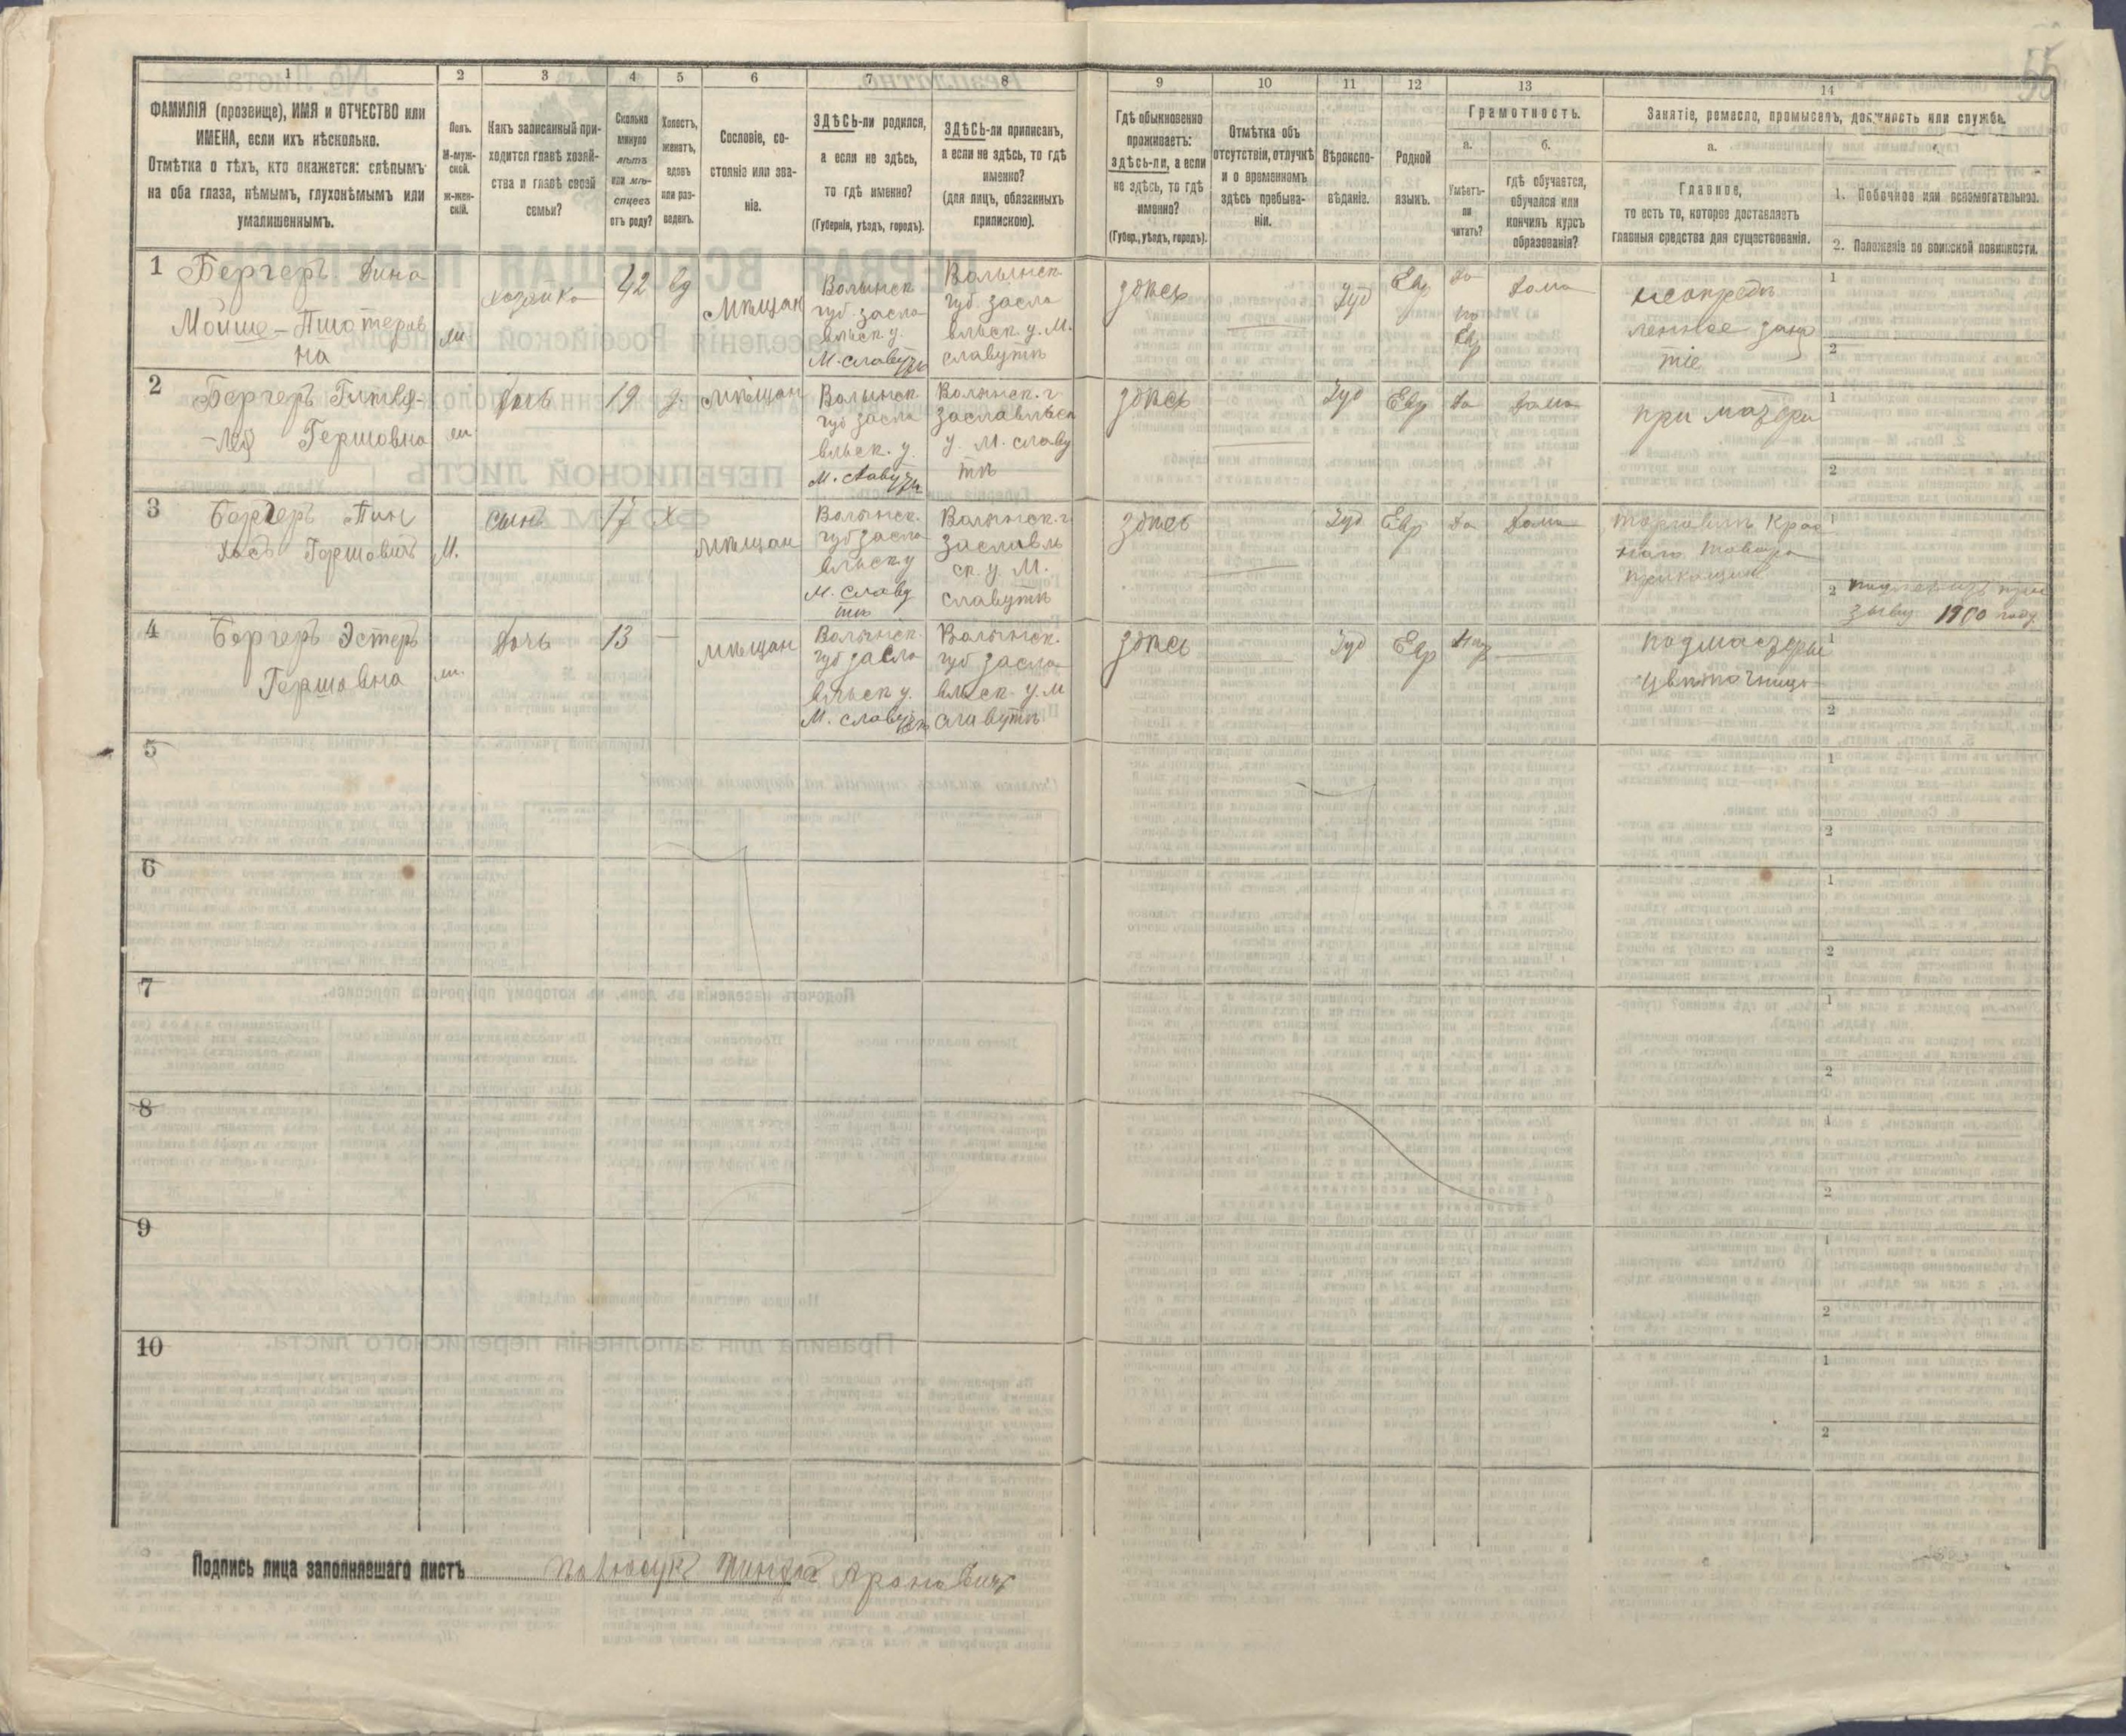 55
1
2
3
4
5
6
7
8
9
10
11
12
13
14
ФАМИЛІЯ (прозвище), ИМЯ и ОТЧЕСТВО или
ИМЕНА, если ихъ нѣсколько.
Отмѣтка о тѣхъ, кто окажется: слѣпымъ
на оба глаза, нѣмымъ, глухонѣмымъ или
умалишеннымъ.
Полъ.
М-муж-
ской.
ж-жен-
скій.
Какъ записанный при-
ходится главѣ хозяй-
ства и главѣ своей
семьи?
Сколько
минуло
лѣтъ
или мѣ-
сяцевъ
отъ роду?
Холостъ,
женатъ,
вдовъ
или раз-
веденъ.
Сословіе, со-
стояніе или зва-
ніе.
ЗДѢСЬ-ли родился,
а если не здѣсь,
то гдѣ именно?
(Губернія, уѣздъ, городъ).
ЗДѢСЬ-ли приписанъ,
а если не здѣсь, то гдѣ
именно?
(для лицъ, обязанныхъ
припискою).
Гдѣ обыкновенно
проживаетъ:
здѣсь-ли, а если
не здѣсь, то гдѣ
именно?
(Губер., уѣздъ, городъ).
Отмѣтка объ
отсутствіи, отлучкѣ
и о временномъ
здѣсь пребыва-
ніи.
Вѣроиспо-
вѣданіе.
Родной
языкъ.
Грамотность.
а.
Умѣетъ-
ли
читать?
б.
гдѣ обучается,
обучался или
кончилъ курсъ
образованія?
Занятіе, ремесло, промыселъ, должность или служба.
а.
Главное,
то есть то, которое доставляетъ
главныя средства для существованія.
1. Побочное или вспомогательное.
2. Положеніе по воинской повинности.
1 Бергеръ Дина
Мойше-Пиотеров
на
хозяйка
42
вд
мѣщан
Волынск
губ. засла
вльск у.
М. славутѣ
Волынск
губ засла
вльск. у. М.
славутѣ
здѣсь
Іуд
Евр
да
по
Евр
дома
неопредѣ
ленное заня
тіе
1
2
2 Бергеръ
Гершовна
дочь
19
д.
мѣщан
Волынск
губ засла
вльск. у.
М. славутѣ
Волынск. г
заславльск
у. М. славу
тѣ
здѣсь
Іуд
Евр
да
дома
при матери
1
2
3 Бергеръ Пин
хасъ Гершовичъ
М.
сынъ
17
х
мѣщан
Волынск.
губ засла
вльск у
М. славу
тѣ
Волынск. г
заславль
ск. у М.
славутѣ
здѣсь
Іуд
Евр
да
дома
торговли крас
наго товара
прикащик
1
2 подлежитъ при
зыву 1900 году
4 Бергеръ Эстеръ
Гершовна
дочь
13
мѣщан
Волынск
губ засла
вльск у.
М. славутѣ
Волынск.
губ засла
вльск. у. М
славутѣ
здѣсь
Іуд
Евр
нѣт
подмастерье
цвѣточница
1
2
5
1
2
6
1
2
7
1
2
8
1
2
9
1
2
10
1
2
Подпись лица заполнявшаго листъ